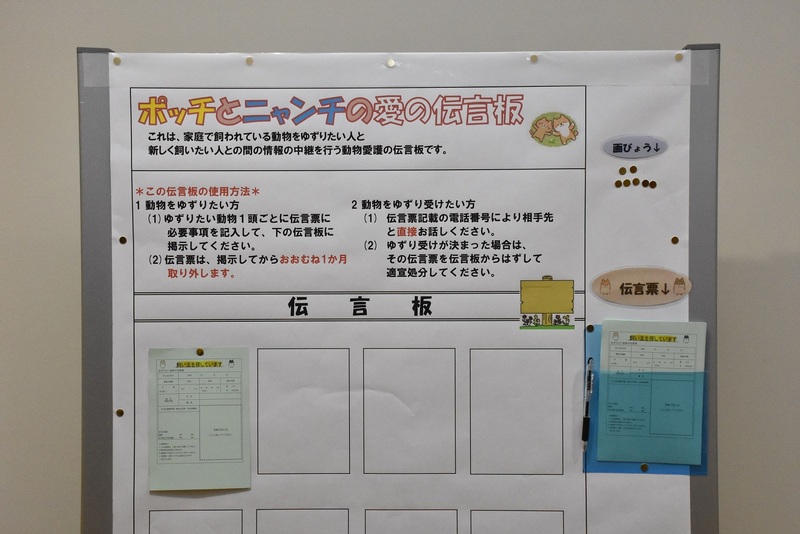 ポッチとニャンチの愛の伝言板
これは、家庭で飼われている動物をゆずりたい人と
新しく飼いたい人との間の情報の中継を行う動物愛護の伝言板です。
＊この伝言板の使用方法＊
1 動物をゆずりたい方
(1)ゆずりたい動物１頭ごとに伝言票に
必要事項を記入して、下の伝言板に
掲示してください。
(2)伝言票は、掲示してからおおむね1か月
取り外します。
2 動物をゆずり受けたい方
(1) 伝言票記載の電話番号により相手先
と直接お話しください。
(2) ゆずり受けが決まった場合は、
その伝言票を伝言板からはずして
適宜処分してください。
伝 言 板
画びょう↓
伝言票↓
飼い主を探しています
飼い主を探しています